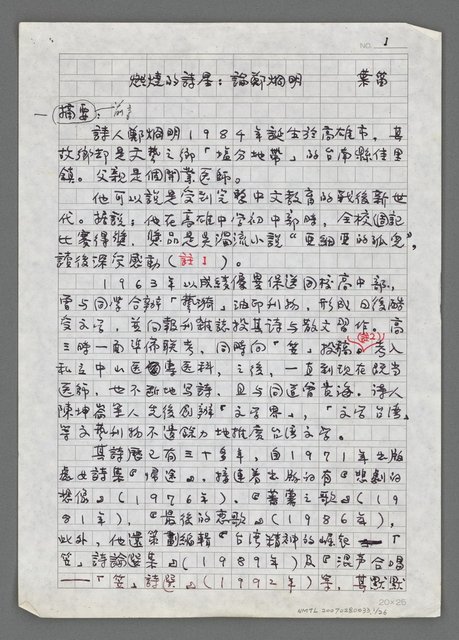 NO. 1
燃燒的詩星：論鄭炯明　葉笛
一 摘要： 前言
詩人鄭炯明1984年誕生於高雄市，其
故鄉却是文藝之鄉「塩分地帶」的台南縣佳里
鎮。父親是個開業医師。
他可以說是受到完整中文教育的戰後新世
代。據說，他在高雄中学初中部時，全校週記
比賽得獎，獎品是吳濁流小說“亞細亞的孤兒”，
讀後深受感動（註1）。
1963年以成績優異保送同校高中部，
曾与同学合辦「藝游」油印刊物，形成日後酷
愛文字，並向報刊雜誌投其詩与散文習作。高
三時一面準備联考，同時向「笠」投稿（註2）。考入
私立中山医專医科，之後，一直到現在既當
医師，也不断地写詩，且与同道曾貴海、詩人
陳坤崙等人先後創辦「文学界」，「文学台湾」
等文藝刊物不遺餘力地推廣台湾文学。
其詩歷已有三十多年，自1971年出版
處女詩集『歸途』，接連着出版的有『悲劇的
想像』（1976年），『蕃薯之歌』（19
81年），『最後的戀歌』（1986年），
此外，他還策劃編輯『台湾精神的崛起——「
笠」詩論選集』（1989年）及『混声合唱
——「笠」詩選』（1992年）等，其默默
20×25
NMTL 20070280033, 1/26